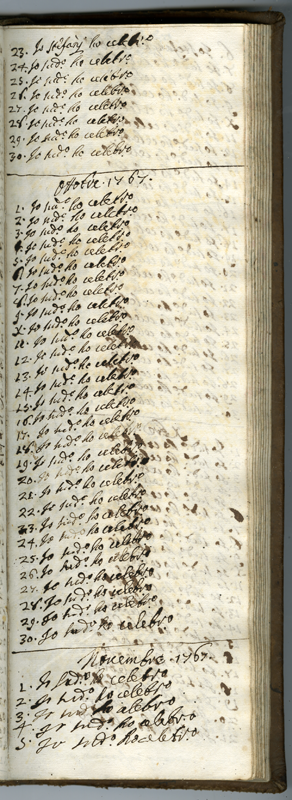 23. Io Stefanj ho celebro
24. Io sud.o ho celebro
25. Io sud.o ho celebro
26. Io sud.o ho celebro
27. Io sud.o ho celebro
28. Io sud.o ho celebro
29. Io sud.o ho celebro
30. Io sud.o ho celebro
Ottobre 1767.
1. Io sud.o ho celebro
2. Io sud.o ho celebro
3. Io sud.o ho celebro
4. Io sud.o ho celebro
5. Io sud.o ho celebro
6. Io sud.o ho celebro
7. Io sud.o ho celebro
8. Io sud.o ho celebro
9. Io sud.o ho celebro
10. Io sud.o ho celebro
11. Io sud.o ho celebro
12. Io sud.o ho celebro
13. Io sud.o ho celebro
14. Io sud.o ho celebro
15. Io sud.o ho celebro
16. Io sud.o ho celebro
17. Io sud.o ho celebro
18. Io sud.o ho celebro
19. Io sud.o ho celebro
20. Io sud.o ho celebro
21. Io sud.o ho celebro
22. Io sud.o ho celebro
23. Io sud.o ho celebro
24. Io sud.o ho celebro
25. Io sud.o ho celebro
26. Io sud.o ho celebro
27. Io sud.o ho celebro
28. Io sud.o ho celebro
29. Io sud.o ho celebro
30. Io sud.o ho celebro
Novembre 1767.
1. Io sud.o ho celebro
2. Io sud.o ho celebro
3. Io sud.o ho celebro
4. Io sud.o ho celebro
5. Io sud.o ho celebro